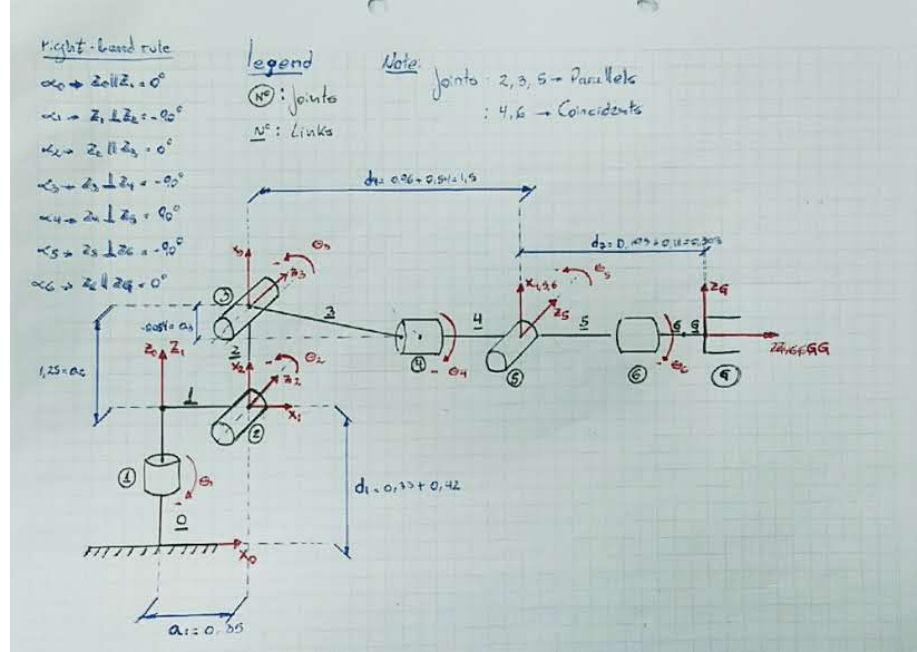 Right-hand rule
α₀ → Z₀ ∥ Z₁ = 0°
α₁ → Z₁ ⊥ Z₂ = -90°
α₂ → Z₂ ∥ Z₃ = 0°
α₃ → Z₃ ⊥ Z₄ = -90°
α₄ → Z₄ ⊥ Z₅ = 90°
α₅ → Z₅ ⊥ Z₆ = -90°
α₆ → Z₆ ∥ ZG = 0°
legend
(Nº) : Joints
Nº : Links
Note:
Joints : 2, 3, 5 → Parallels
: 4, 6 → Coincidents
d₄ = 0,96 + 0,54 = 1,5
X₃
θ₃
Z₃
3
-0,054 = a₃
3
1,25 = a₂
Z₀ Z₁
2
X₂
θ₂
Z₂
1
X₁
2
1
θ₁
0
X₀
d₁ = 0,33 + 0,42
a₁ = 0,35
4
- θ₄
4
X₄,₅,₆
θ₅
Z₅
5
5
6
- θ₆
6
G
ZG
G